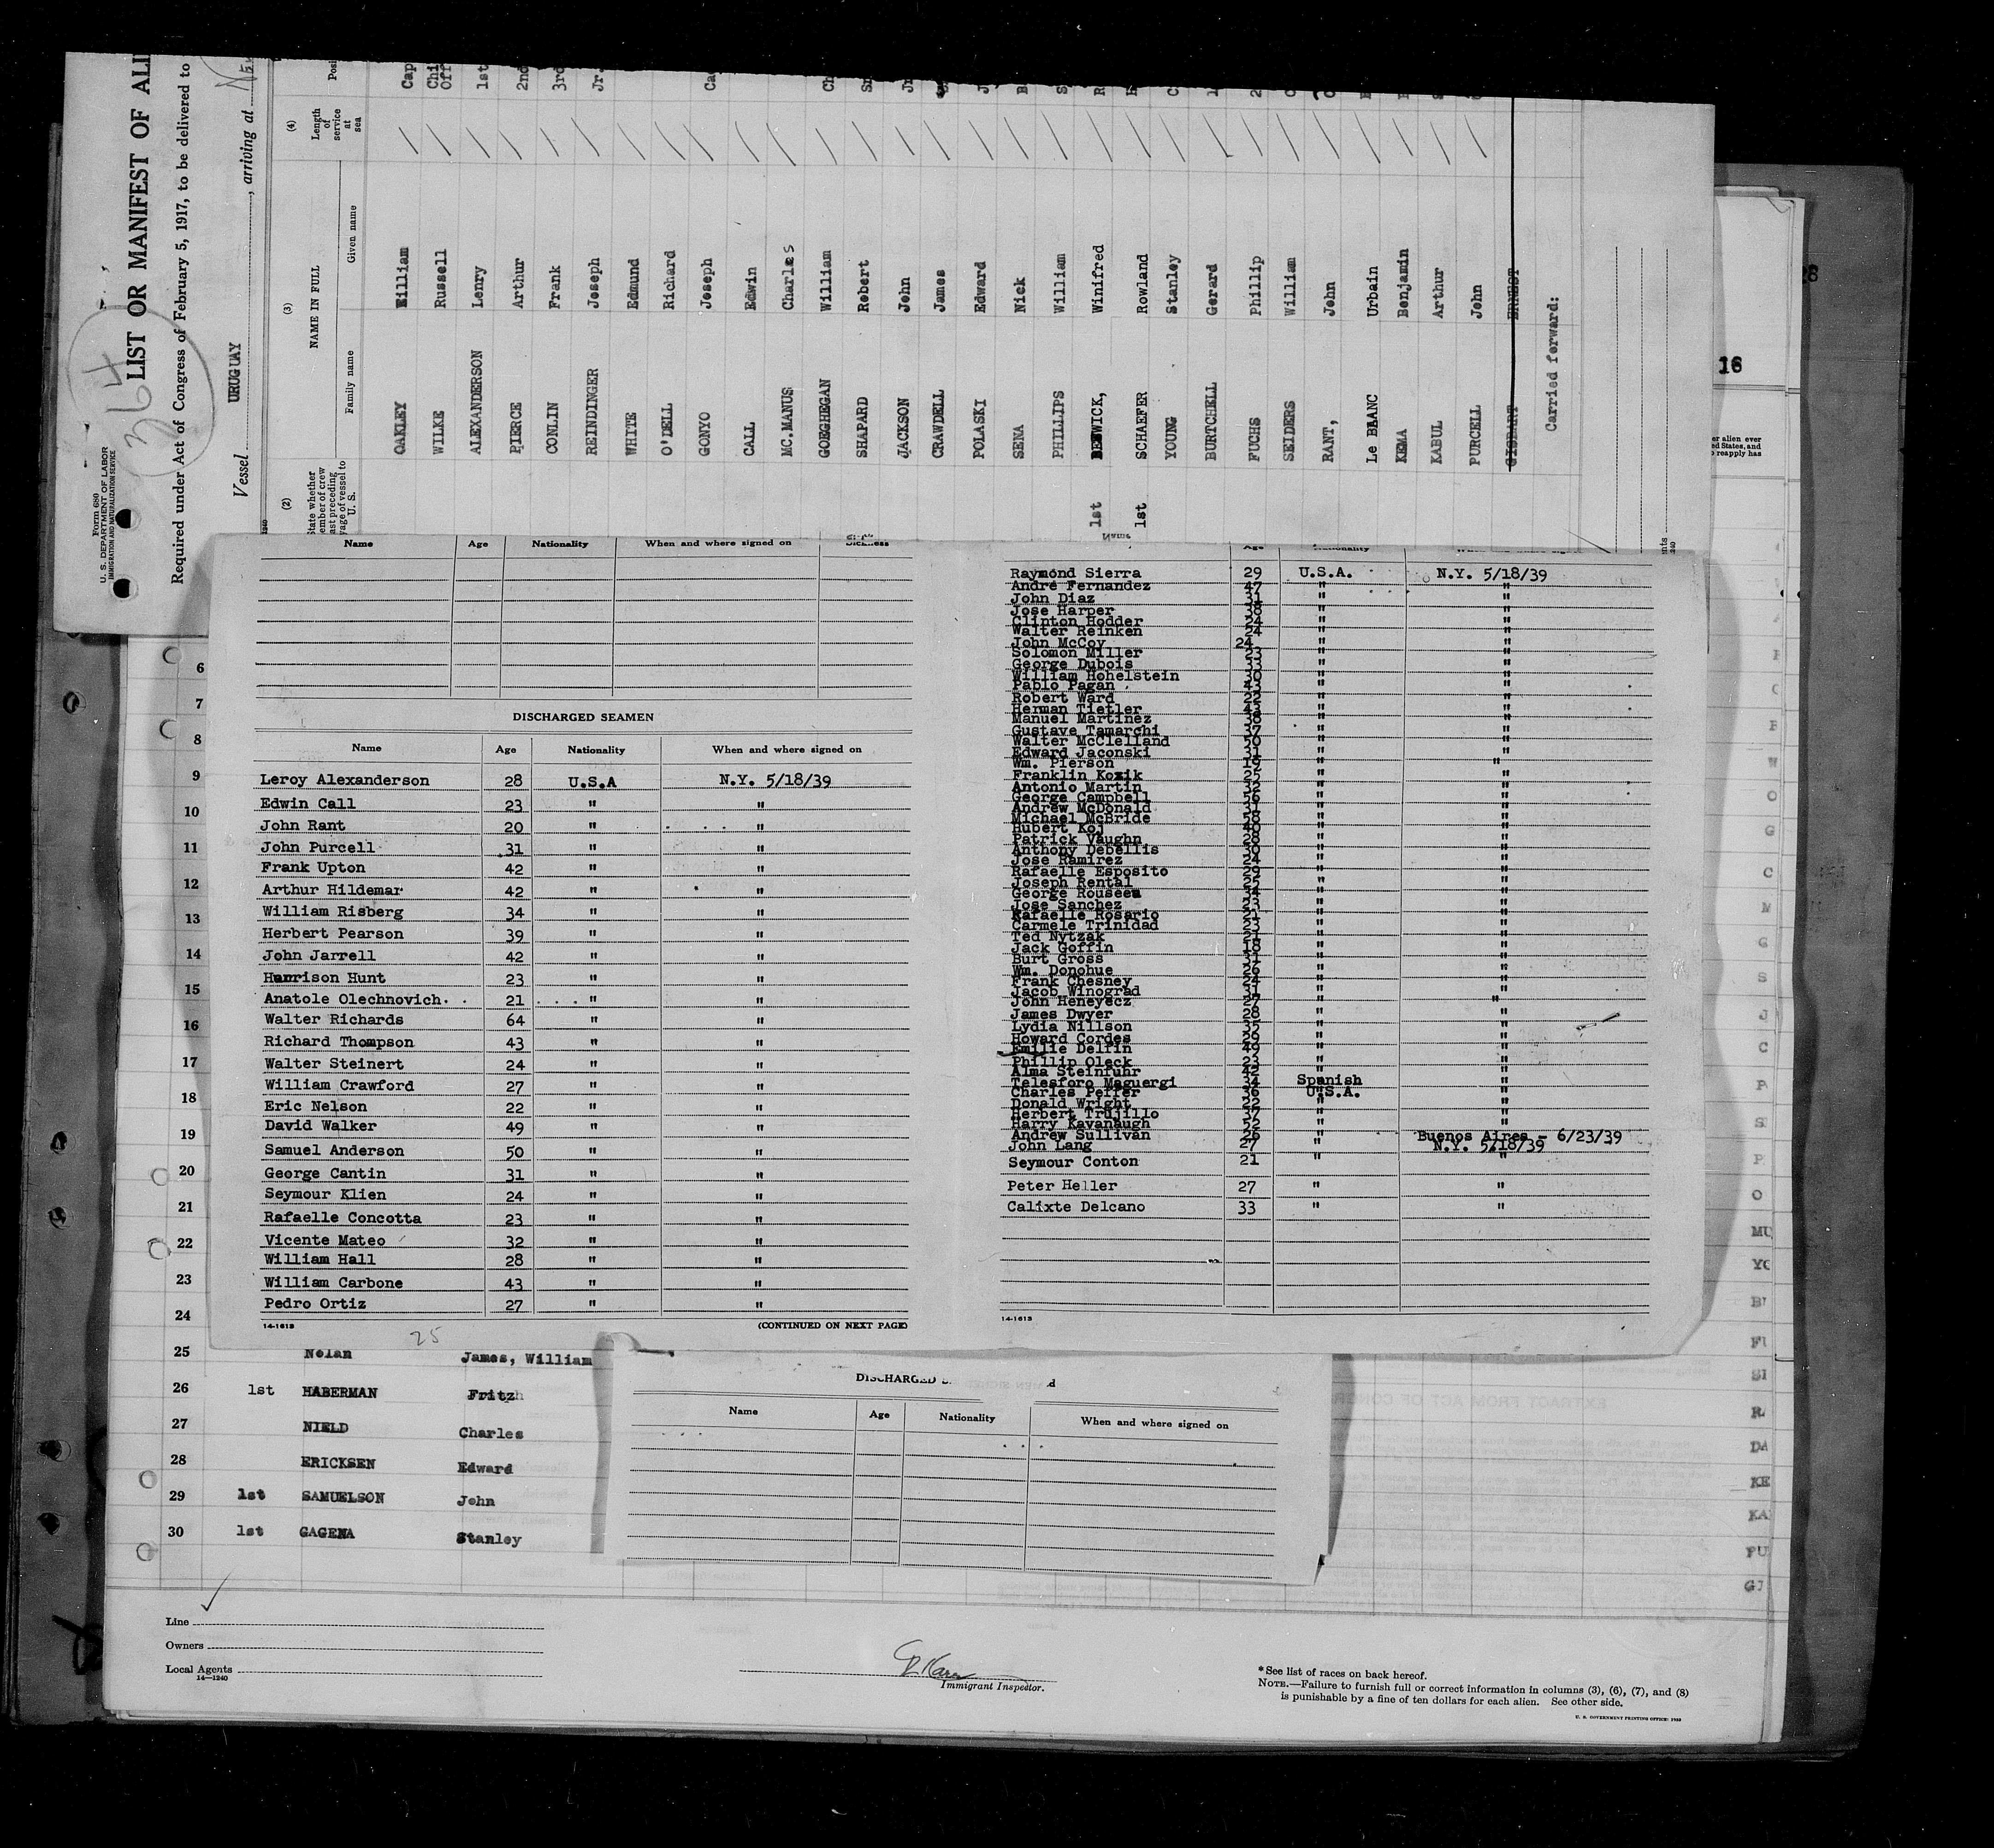 Form 680
U. S. DEPARTMENT OF LABOR
IMMIGRATION AND NATURALIZATION SERVICE
364
LIST OR MANIFEST OF ALI
Required under Act of Congress of February 5, 1917, to be delivered to
Vessel URUGUAY, arriving at
(2) (3) (4)
State whether member of crew last preceding voyage of vessel to U. S.
NAME IN FULL
Family name Given name
Length of service at sea
OAKLEY William Cap
WILKE Russell Chi Off
ALEXANDERSON Lenry 1st
PIERCE Arthur 2nd
CONLIN Frank 3rd
REINDINGER Joseph Jr.
WHITE Edmund
O'DELL Richard
GONYO Joseph Cad
CALL Edwin
MC.MANUS Charles
GOEGHEGAN William Ch
SHAPARD Robert
JACKSON John
CRAWDELL James
POLASKI Edward
SENA Nick
PHILLIPS William
1st BESWICK, Winifred
1st SCHAEFER Rowland
YOUNG Stanley
BURTCHELL Gerard
FUCHS Phillip
SEIDERS William
RANT, John
Le BAANC Urbain
KEMA Benjamin
KABUL Arthur
PURCELL John
GISBART ERNEST
Carried forward:
16
er alien ever
ed States, and
o reapply has
Name Age Nationality When and where signed on
DISCHARGED SEAMEN
Name Age Nationality When and where signed on
Leroy Alexanderson 28 U.S.A N.Y. 5/18/39
Edwin Call 23 " "
John Rant 20 " "
John Purcell 31 " "
Frank Upton 42 " "
Arthur Hildemar 42 " "
William Risberg 34 " "
Herbert Pearson 39 " "
John Jarrell 42 " "
Harrison Hunt 23 " "
Anatole Olechnovich 21 " "
Walter Richards 64 " "
Richard Thompson 43 " "
Walter Steinert 24 " "
William Crawford 27 " "
Eric Nelson 22 " "
David Walker 49 " "
Samuel Anderson 50 " "
George Cantin 31 " "
Seymour Klien 24 " "
Rafaelle Concotta 23 " "
Vicente Mateo 32 " "
William Hall 28 " "
William Carbone 43 " "
Pedro Ortiz 27 " "
14-1613 (CONTINUED ON NEXT PAGE)
25
Raymond Sierra 29 U.S.A. N.Y. 5/18/39
Andre Fernandez 47 " "
John Diaz 31 " "
Jose Harper 38 " "
Clinton Hodder 24 " "
Walter Reinken 24 " "
John McCoy 24 " "
Solomon Miller 23 " "
George Dubois 33 " "
William Hohelstein 30 " "
Pablo Pagan 43 " "
Robert Ward 22 " "
Herman Tietler 43 " "
Manuel Martinez 38 " "
Gustave Tamarchi 37 " "
Walter McClelland 50 " "
Edward Jaconski 31 " "
Wm. Pierson 19 " "
Franklin Kozik 25 " "
Antonio Martin 32 " "
George Campbell 56 " "
Andrew McDonald 31 " "
Michael McBride 58 " "
Hubert Koj 40 " "
Patrick Vaughn 28 " "
Anthony Debellis 30 " "
Jose Ramirez 24 " "
Rafaelle Esposito 29 " "
Joseph Rental 25 " "
George Rouseea 34 " "
Jose Sanchez 23 " "
Rafaelle Rosario 21 " "
Carmele Trinidad 23 " "
Ted Nytzak 21 " "
Jack Goffin 18 " "
Burt Gross 31 " "
Wm. Donohue 26 " "
Frank Chesney 24 " "
Jacob Winograd 31 " "
John Heneyecz 27 " "
James Dwyer 28 " "
Lydia Nillson 35 " "
Howard Cordes 29 " "
Emilie Delfin 49 " "
Phillip Oleck 23 " "
Alma Steinfuhr 42 " "
Telesforo Maguergi 34 Spanish "
Charles Peffer 36 U.S.A. "
Donald Wright 22 " "
Herbert Trujillo 37 " "
Harry Kavanaugh 52 " "
Andrew Sullivan 26 " Buenos Aires - 6/23/39
John Lang 27 " N.Y. 5/18/39
Seymour Conton 21 " "
Peter Heller 27 " "
Calixte Delcano 33 " "
14-1613
6
7
8
9
10
11
12
13
14
15
16
17
18
19
20
21
22
23
24
25 Nolan James, William
26 1st HABERMAN Fritz
27 NIELD Charles
28 ERICKSEN Edward
29 1st SAMUELSON John
30 1st GAGENA Stanley
Name Age Nationality When and where signed on
Line
Owners
Local Agents
14—1240
Immigrant Inspector.
*See list of races on back hereof.
NOTE.—Failure to furnish full or correct information in columns (3), (6), (7), and (8)
is punishable by a fine of ten dollars for each alien. See other side.
U. S. GOVERNMENT PRINTING OFFICE: 1938